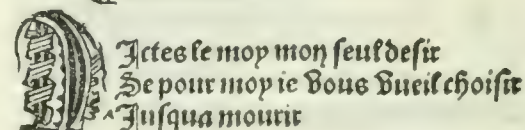 DIctes le moy mon seul desir
Se pour moy ie vous vueil choisir
Jusqua mourir